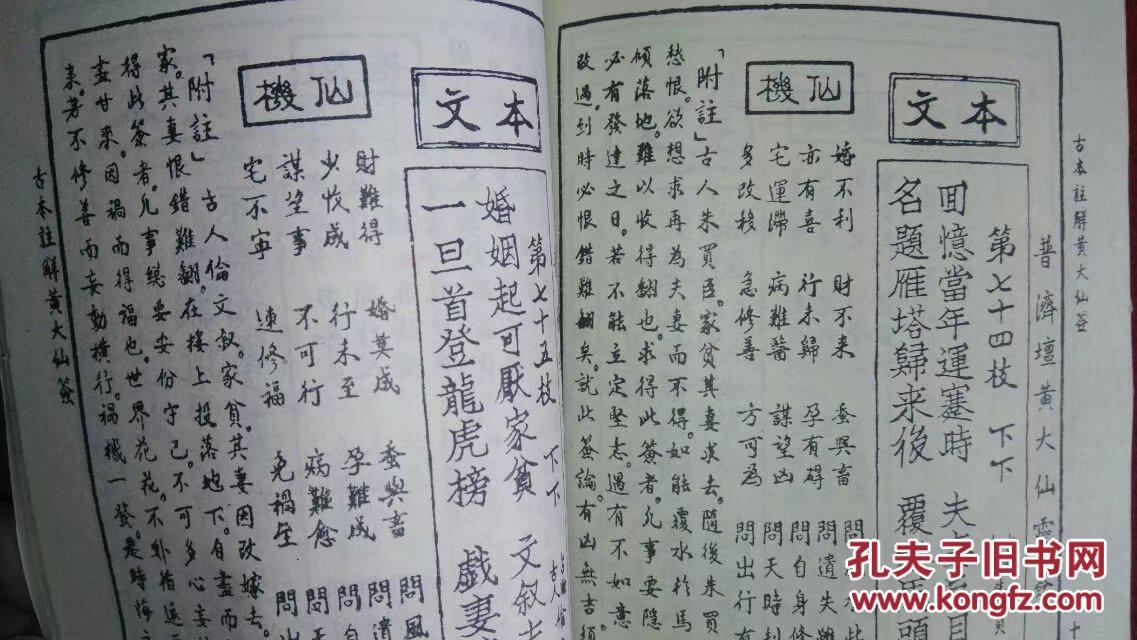 古本註解黃大仙簽
普濟壇黃大仙靈
本文
第七十四枝 下下
回憶當年運蹇時 夫
名題雁塔歸来後 覆
仙機
婚不利 財不来 蚕與畜 問
亦有喜 行未歸 孕有碍 問遺失
宅運滯 病難醫 謀望凶 問自身
多改移 急修善 方可為 問天時
問出行
「附註」古人朱買臣。家貧其妻求去。隨後朱買
愁恨。欲想求再為夫妻而不得。如能覆水於馬
傾落地。難以收得翻也。求得此簽者。凡事要隱
必有發達之日。若不能立定堅志。遇有不如意
改過。到時必恨錯難翻矣。就此簽論。有凶無吉。須
本文
第七十五枝 下下
婚姻起可厭家貧 文叙
一旦首登龍虎榜 戲妻
仙機
財難得 婚莫成 蚕與畜 問風
少收成 行未至 孕難成 問
謀望事 不可行 病難愈 問自
宅不寧 速修福 免禍生 問
「附註」古人倫文叙。家貧。其妻因改嫁去。
家。其妻恨錯難翻。在樓上投落地下。自盡而
得此簽者。凡事總要安份守己。不可多心妄
盡甘来。因禍而得福也。世界花花。不
来。若不修善而妄動橫行。禍機一發。是時悔
古本註解黃大仙簽
孔夫子旧书网
www.kongfz.com